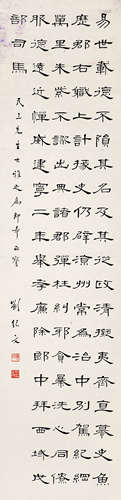 易世載德不隕其名及其從政清擬夷齊直慕史魚
歷郡右職上計掾史仍辟涼州常為治中別駕紀綱
萬里朱紫不謬出典諸郡彈枉糾邪貪暴洗心同僚
服德遠近憚威建寧二年舉孝廉除郎中拜西域戊
部司馬
上先生大雅之屬即希正
劉紀文